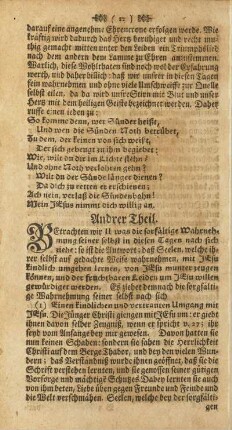 ( 12 )
darauf eine angenehme Ehrencrone erfolgen werde. Wie
kräftig wird dadurch das Hertz beruhiget und recht mu-
thig gemacht mitten unter den Leiden ein Triumphslied
nach dem andern dem Lamme zu Ehren anzustimmen.
Warlich, diese Wohlthaten sind noch wol der Erfahrung
werth, und daher billich: daß wir unsrer in diesen Tagen
sein wahrnehmen und ohne viele Umschweiffe zur Quelle
selbst eilen. Ja da wäre unsre Stirn mit Blut und unser
Hertz mit dem heiligen Geiste bezeichnet werden. Daher
ruffe einen jeden zu:
So komme denn, wer Sünder heißt,
Und wen die Sünden Noth betrübet,
Zu dem, der keinen von sich weißt,
Der sich gebeugt zu ihm begiebet;
Wie, wilt du dir im Lichte stehn?
Und ohne Noth verlohren gehn?
Wilt du der Sünde länger dienen?
Da dich zu retten er erschienen;
Ach nein, verlaß die Sündenbahn!
Mein JEsus nimmt dich willig an.
Andrer Theil.
Betrachten wir II was die sorfältige Wahrneh-
mung seiner selbst in diesen Tagen nach sich
ziehe: so ist die Antwort: daß Seelen, welche ih-
rer selbst auf gedachte Weise wahrnehmen, mit JEsu
kindlich umgehen lernen, von JEsu munter zeugen
können, und der fruchtbaren Leiden um JEsu willen
gewürdiget werden. Es ziehet demnach die sorgfälti-
ge Wahrnehmung seiner selbst nach sich
(1) Einen kindlichen und vertrauten Umgang mit
JEsu. Die Jünger Christi giengen mit JEsu um: er giebt
ihnen davon selbst Zeugniß, wenn er spricht v. 27: ihr
seyd von Anfang bey mir gewesen. Davon hatten sie
nun keinen Schaden: sondern sie sahen die Herrlichkeit
Christi auf dem Berge Thabor, und bey den vielen Wun-
dern; das Verständniß wurde ihnen geöffnet, daß sie die
Schrift verstehen lernten, und sie genossen seiner gütigen
Vorsorge und mächtigen Schutzes Dabey lernten sie auch
von ihm beten, Liebe üben gegen Freunde und Feinde und
die Welt verschmähen. Seelen, welche bey der sorgfälti-
gen